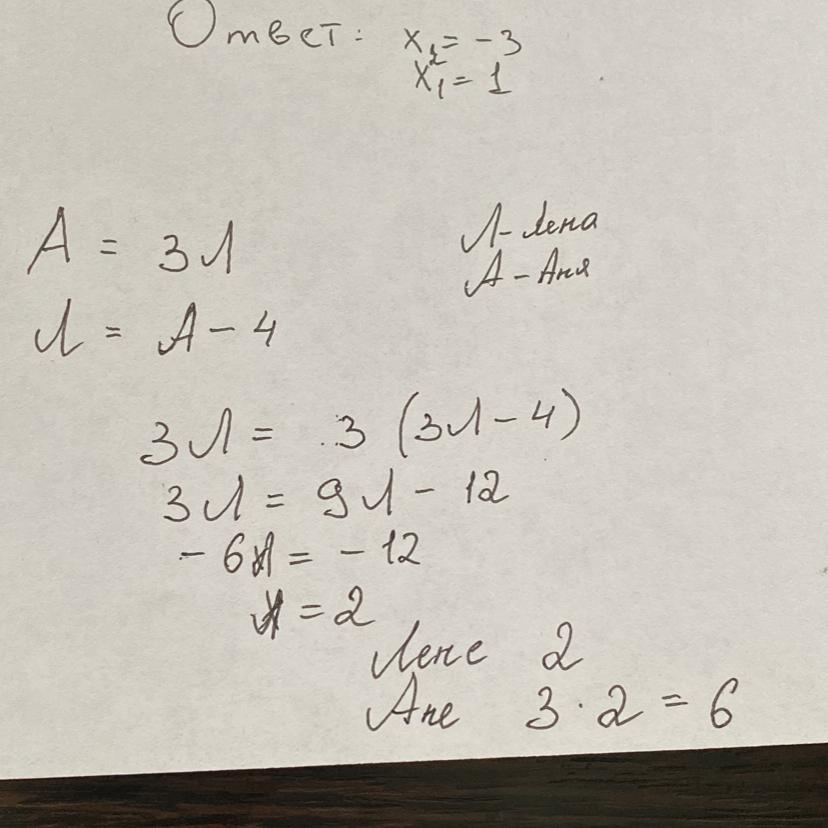 Ответ: x₂ = -3
x₁ = 1
А = 3Л
Л = А - 4
Л - Лена
А - Аня
3Л = 3 (3Л - 4)
3Л = 9Л - 12
- 6Л = - 12
Л = 2
Лене 2
Ане 3 · 2 = 6